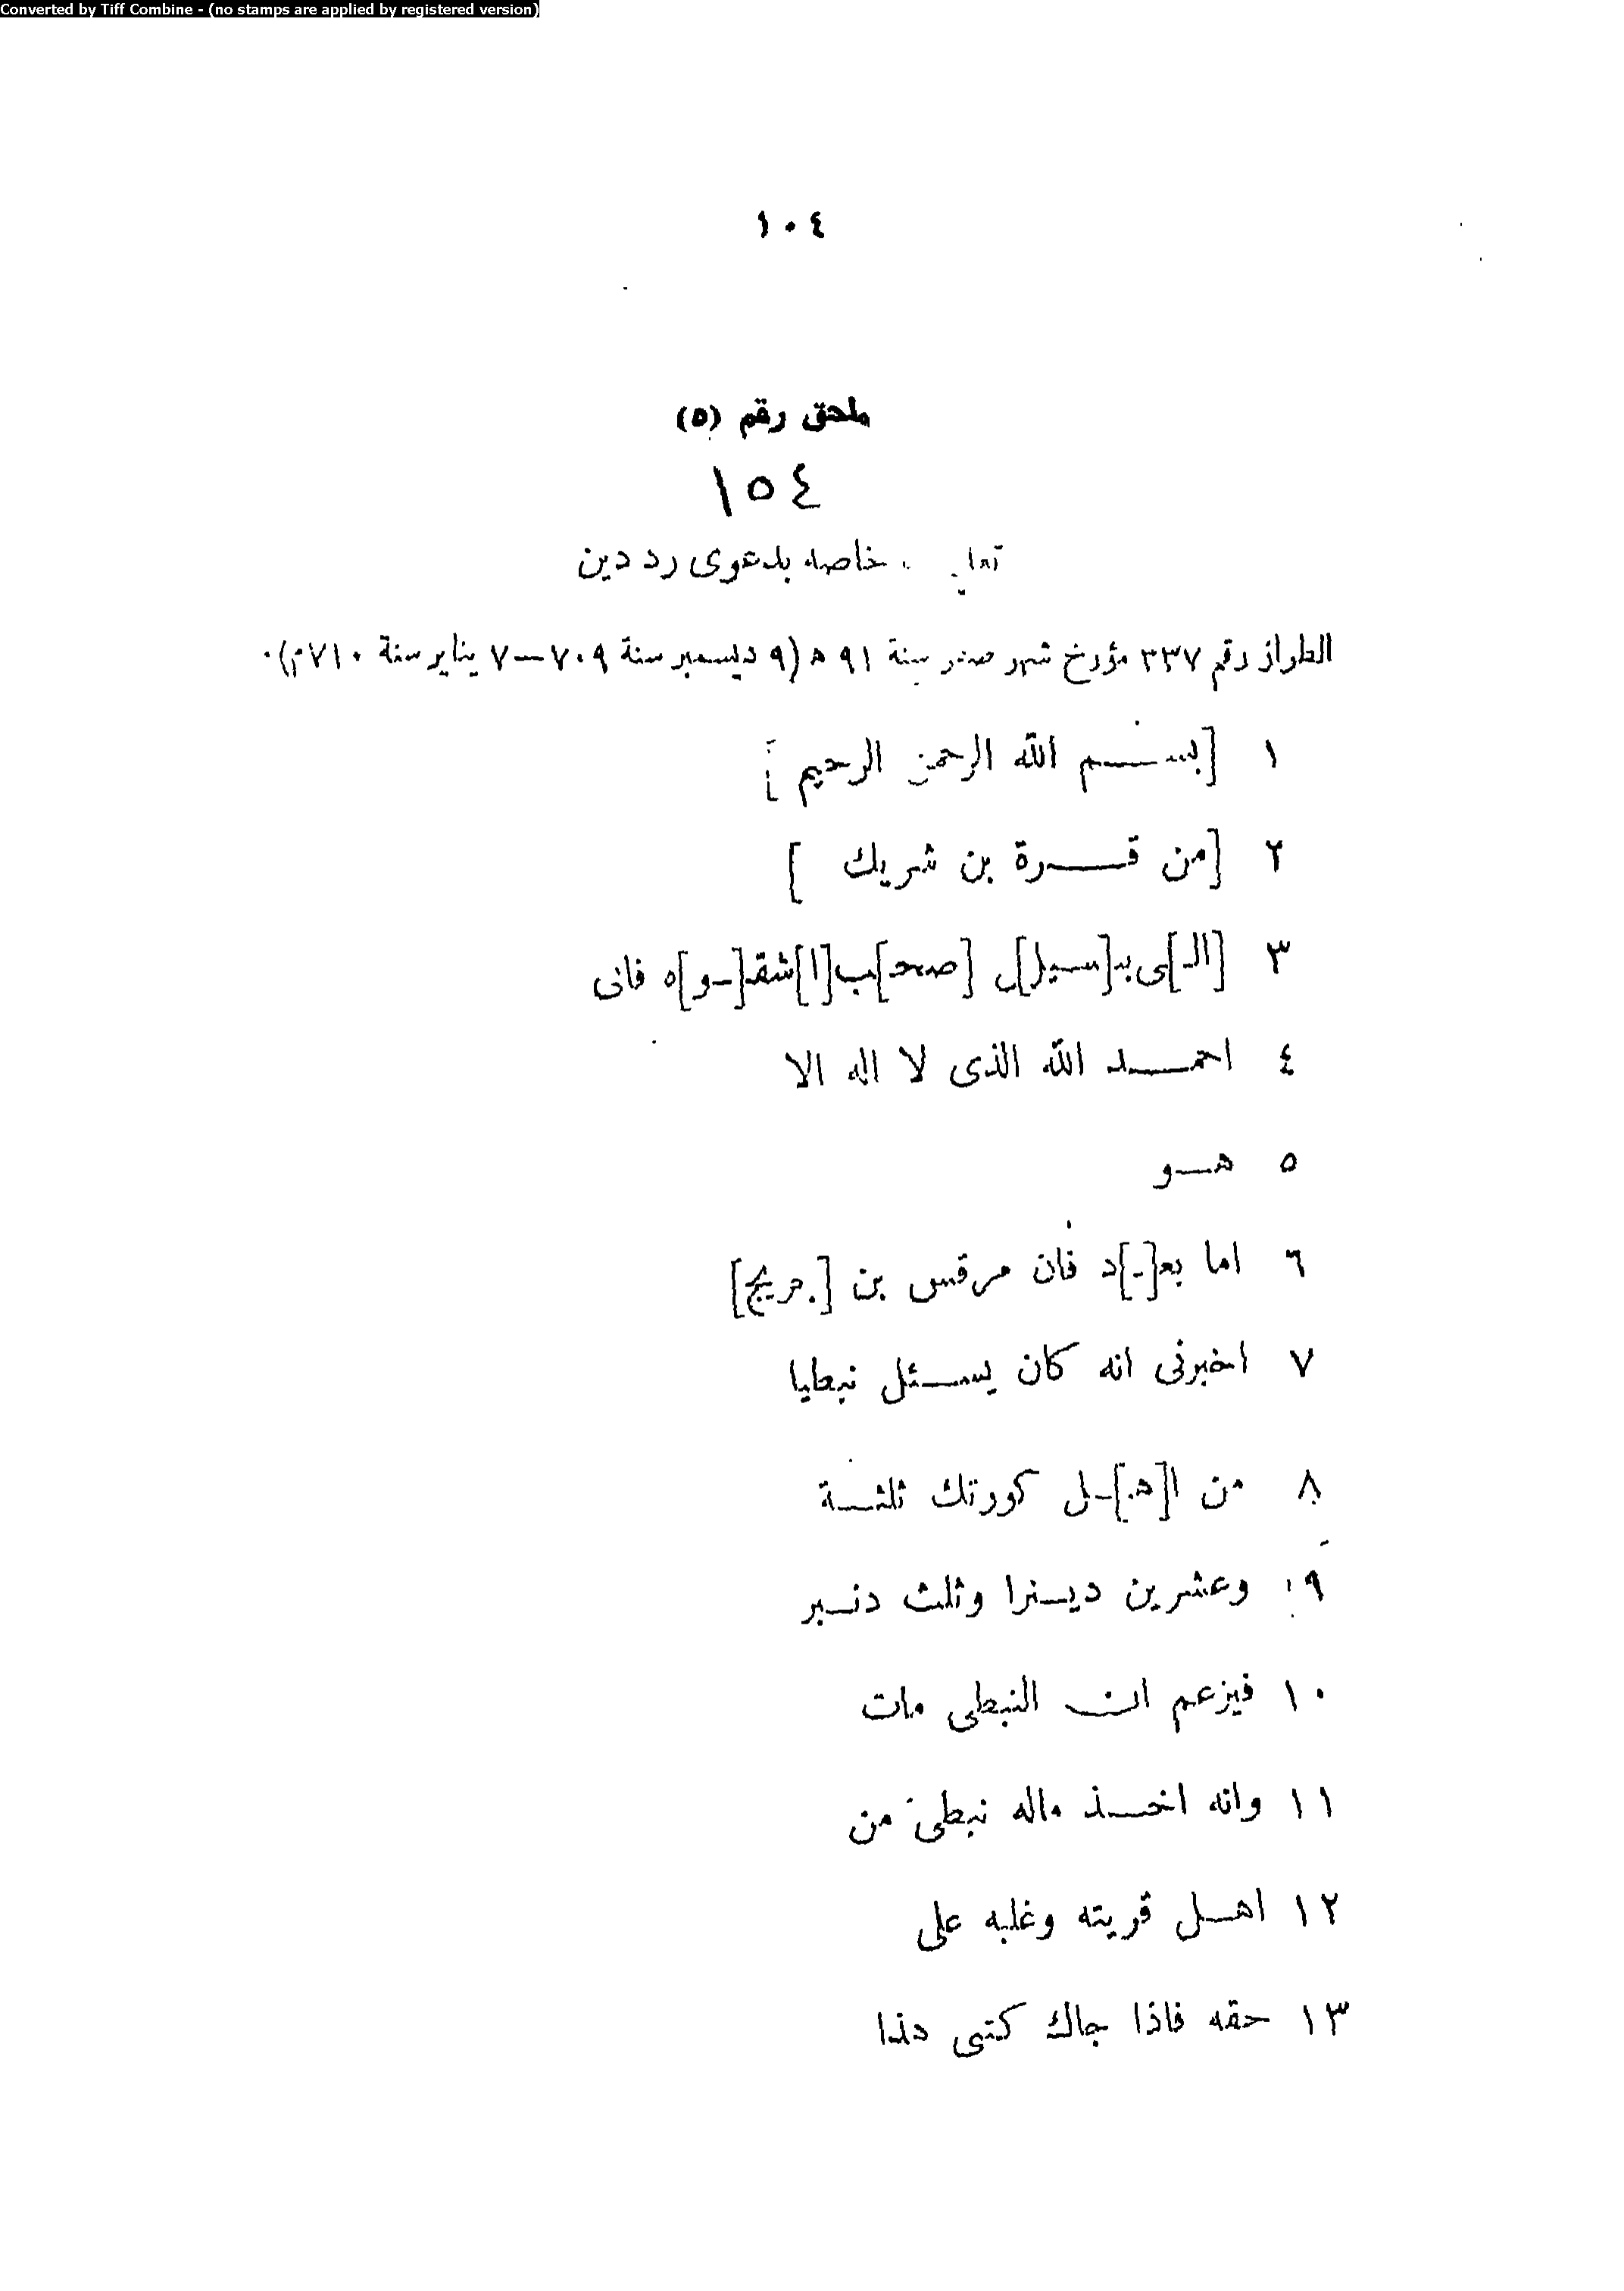 Converted by Tiff Combine - (no stamps are applied by registered version)
١٠٤
ملحق رقم (٥)
١٥٤
خاصه بدعوى رد دين
الطراز رقم ٣٣٧ مؤرخ شهر صفر سنة ٩١ ه (٩ ديسمبر سنة ٧٠٩ – ٧ يناير سنة ٧١٠م)٠
١ [بسم الله الرحمن الرحيم]
٢ [من قرة بن شريك ]
٣ [الـ]ى بـ[سيل]ل [صحـ]ب[ا]شقـ[ـو]ه فانى
٤ احمد الله الذى لا اله الا
٥ هو
٦ اما بعـ[ـ]د فان مرقس بن [جريج]
٧ اخبرنى انه كان يسئل نبطيا
٨ من ا[هـ]ـل كورتك ثلثة
٩ وعشرين دينرا وثلث دنير
١٠ فيزعم ان النبطى مات
١١ وانه اخذ ماله نبطى من
١٢ اهل قريته وغلبه على
١٣ حقه فاذا جاك كتبى هذا